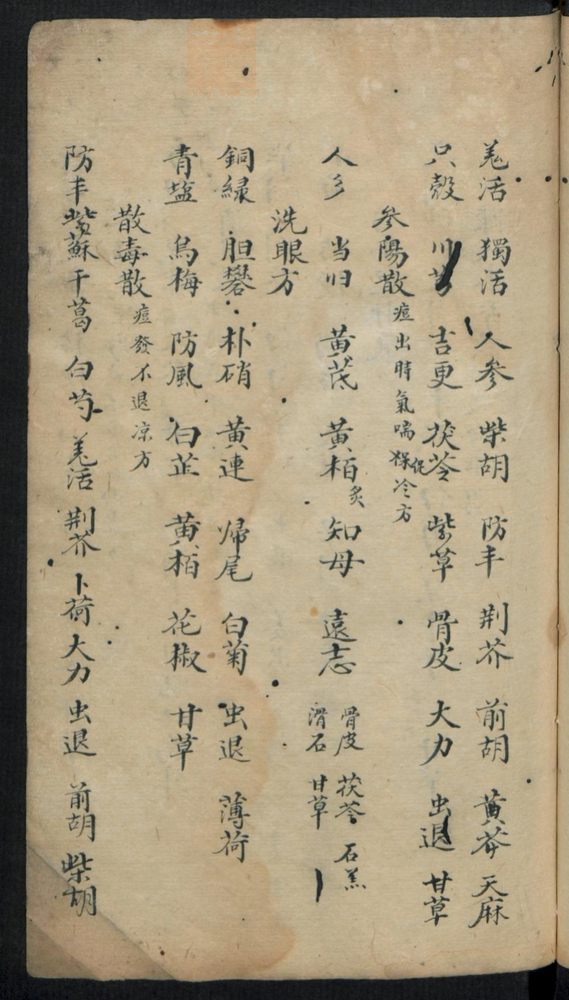 羌活 獨活 人参 柴胡 防丰 荆芥 前胡 黄芩 天麻
只殼 川芎 吉更 茯苓 紫草 骨皮 大力 虫退 甘草
参陽散 痘出時氣喘 冷方
人参 当归 黄茋 黄栢炙 知母 遠志 骨皮 茯苓 石羔 滑石 甘草
洗眼方
銅緑 胆礬 朴硝 黄連 帰尾 白菊 虫退 薄荷
青盐 烏梅 防風 白芷 黄栢 花椒 甘草
散毒散 痘發不退凉方
防丰 紫蘇 干葛 白芍 羌活 荆芥 卜荷 大力 虫退 前胡 柴胡